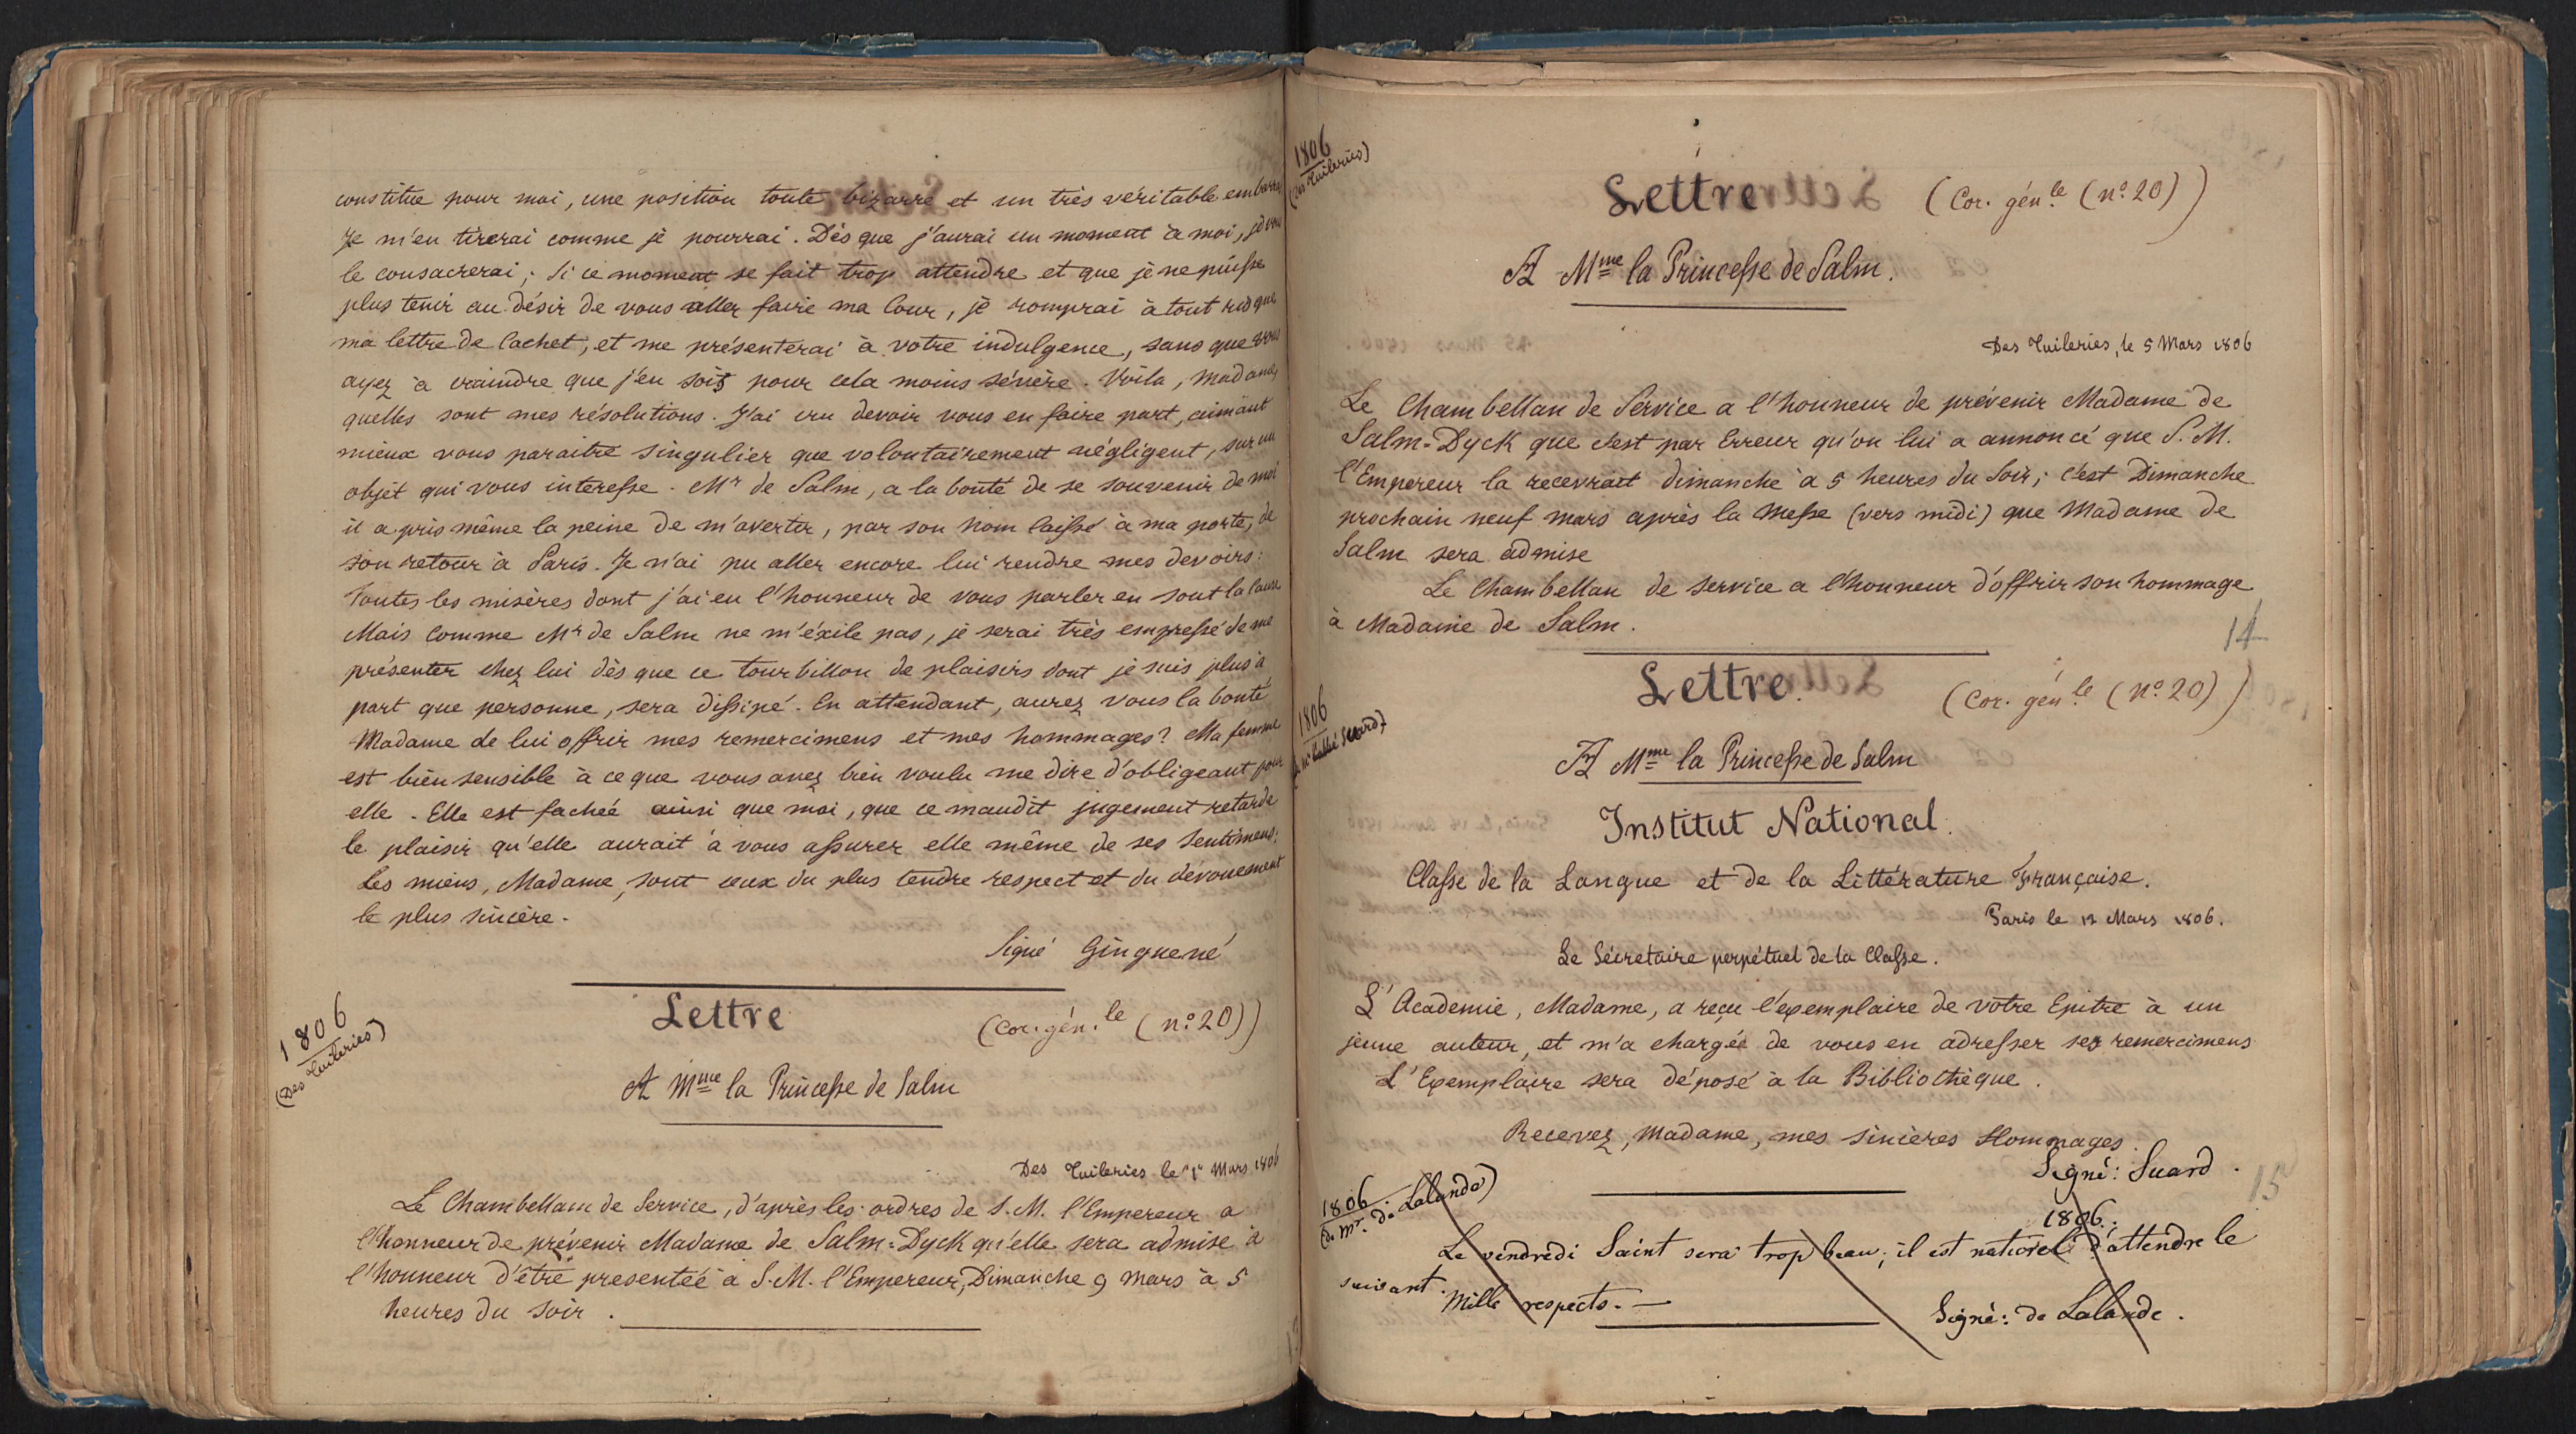 constitue pour moi, une position toute bizarre et un très véritable embarras
Je m'en tirerai comme je pourrai. Dès que j'aurai un moment à moi, je vous
le consacrerai; Si ce moment se fait trop attendre et que je ne puisse
plus tenir au désir de vous aller faire ma Cour, je romprai à tout risque
ma lettre de Cachet, et me présenterai à votre indulgence, sans que vous
ayez à craindre que j'en sois pour cela moins sévère. Voila, madame,
quelles sont mes résolutions. J'ai cru devoir vous en faire part, aimant
mieux vous paraitre singulier que volontairement négligent, sur un
objet qui vous interesse. Mr de Salm, a la bonté de se souvenir de moi
il a pris même la peine de m'avertir, par son nom laissé à ma porte, de
son retour à Paris. Je n'ai pu aller encore lui rendre mes devoirs:
toutes les misères dont j'ai eu l'honneur de vous parler en sont la Cause
Mais comme Mr de Salm ne m'éxile pas, je serai très empressé de me
présenter chez lui dès que ce tourbillon de plaisirs dont je suis plus à
part que personne, sera dissipé. En attendant, aurez vous la bonté
Madame de lui offrir mes remercimens et mes hommages? Ma femme
est bien sensible à ce que vous avez bien voulu me dire d'obligeant pour
elle. Elle est fachée ainsi que moi, que ce maudit jugement retarde
le plaisir qu'elle aurait à vous assurer elle même de ses sentimens.
Les miens, Madame, sont ceux du plus tendre respect et du dévouement
le plus sincère.
Signé Ginguené
1806
(Des Tuileries)
Lettre (Cor. gén.le (n:o 20))
A Mme la Princesse de Salm
Des Tuileries le 1er Mars 1806
Le Chambellan de Service, d'après les ordres de S.M. l'Empereur a
l'honneur de prévenir Madame de Salm-Dyck qu'elle sera admise à
l'honneur d'être presentée à S.M. l'Empereur, Dimanche 9 mars à 5
heures du soir.
1806
(Des Tuileries)
Lettre (Cor. gén.le (n:o 20))
A Mme la Princesse de Salm.
Des Tuileries, le 5 Mars 1806
Le Chambellan de Service a l'honneur de prévenir Madame de
Salm-Dyck que c'est par Erreur qu'on lui a annoncé que S.M.
l'Empereur la recevrait dimanche à 5 heures du Soir; c'est Dimanche
prochain neuf mars après la Messe (vers midi) que Madame de
Salm sera admise
Le Chambellan de service a l'honneur d'offrir son hommage
à Madame de Salm.
14
1806
Lettre. (Cor. gén.le (n:o 20))
A Mme la Princesse de Salm
Institut National.
Classe de la Langue et de la Littérature Française.
Paris le 12 Mars 1806.
Le Sécretaire perpétuel de la Classe.
L'Academie, Madame, a reçu l'exemplaire de votre Epitre à un
jeune auteur, et m'a chargée de vous en adresser ses remercimens
L'Exemplaire sera déposé à la Bibliothèque.
Recevez, Madame, mes sincères Hommages.
Signé: Suard.
15
1806
(de Mr. de Lalande)
1806.
Le vendredi Saint sera trop beau; il est naturel d'attendre le
suivant.
Mille respects.
Signé: de Lalande.